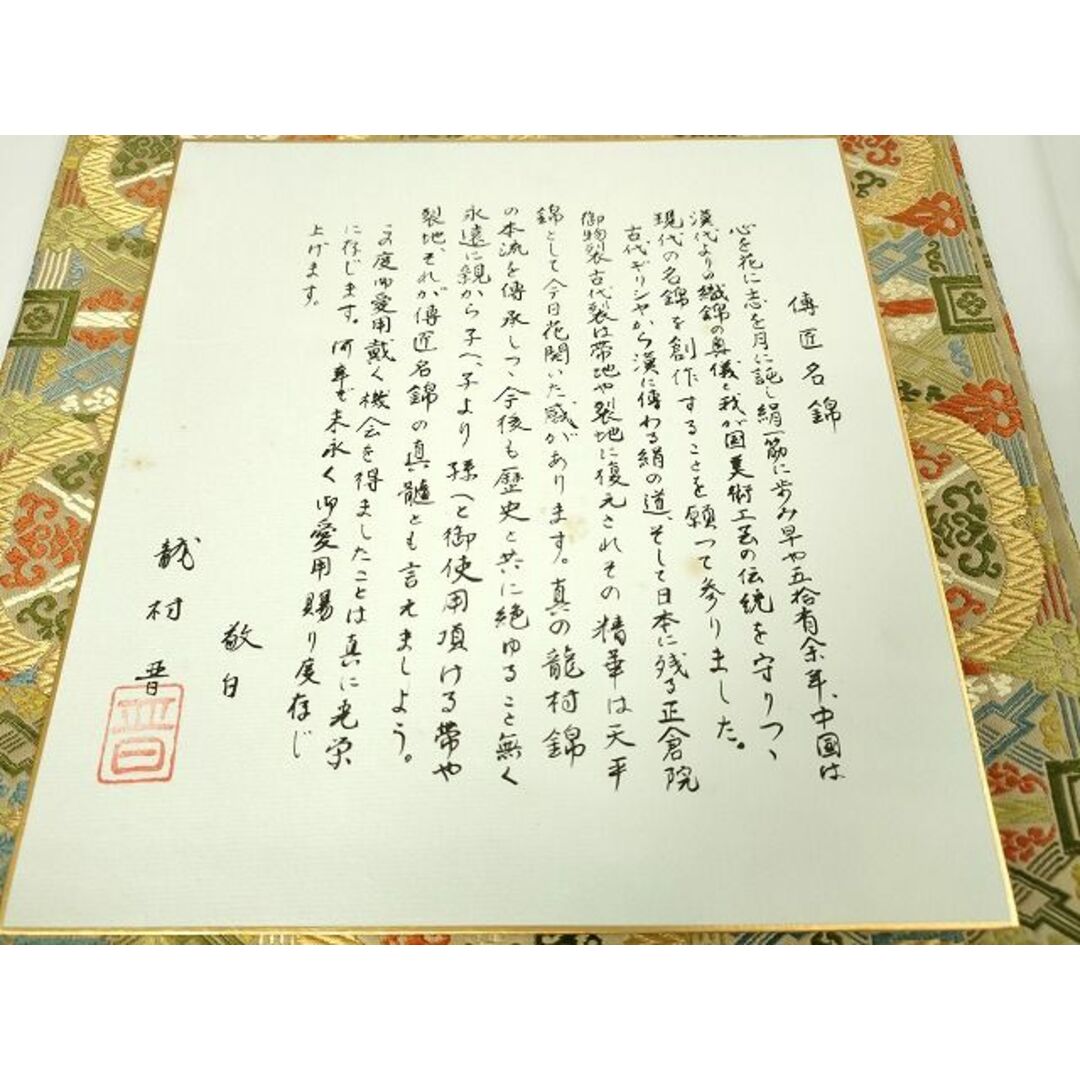 傳匠名錦
心を花に志を月に託し絹一筋に歩み早や五拾有余年、中国は
漢代よりの織錦の奥儀と我が国美術工芸の伝統を守りつゝ
現代の名錦を創作することを願って参りました。
古代ギリシヤから漢に傳わる絹の道、そして日本に残る正倉院
御物裂古代裂は帯地や裂地に復元されその精華は天平
錦として今日花開いた感があります。真の龍村錦
の本流を傳承しつゝ今後も歴史と共に絶ゆること無く
永遠に親から子へ、子より孫へと御使用頂ける帯や
裂地、それが傳匠名錦の真髄とも言えましよう。
この度御愛用戴く機会を得ましたことは真に光栄
に存じます。何卒末永く御愛用賜り度存じ
上げます。
敬白
龍村晋
晋